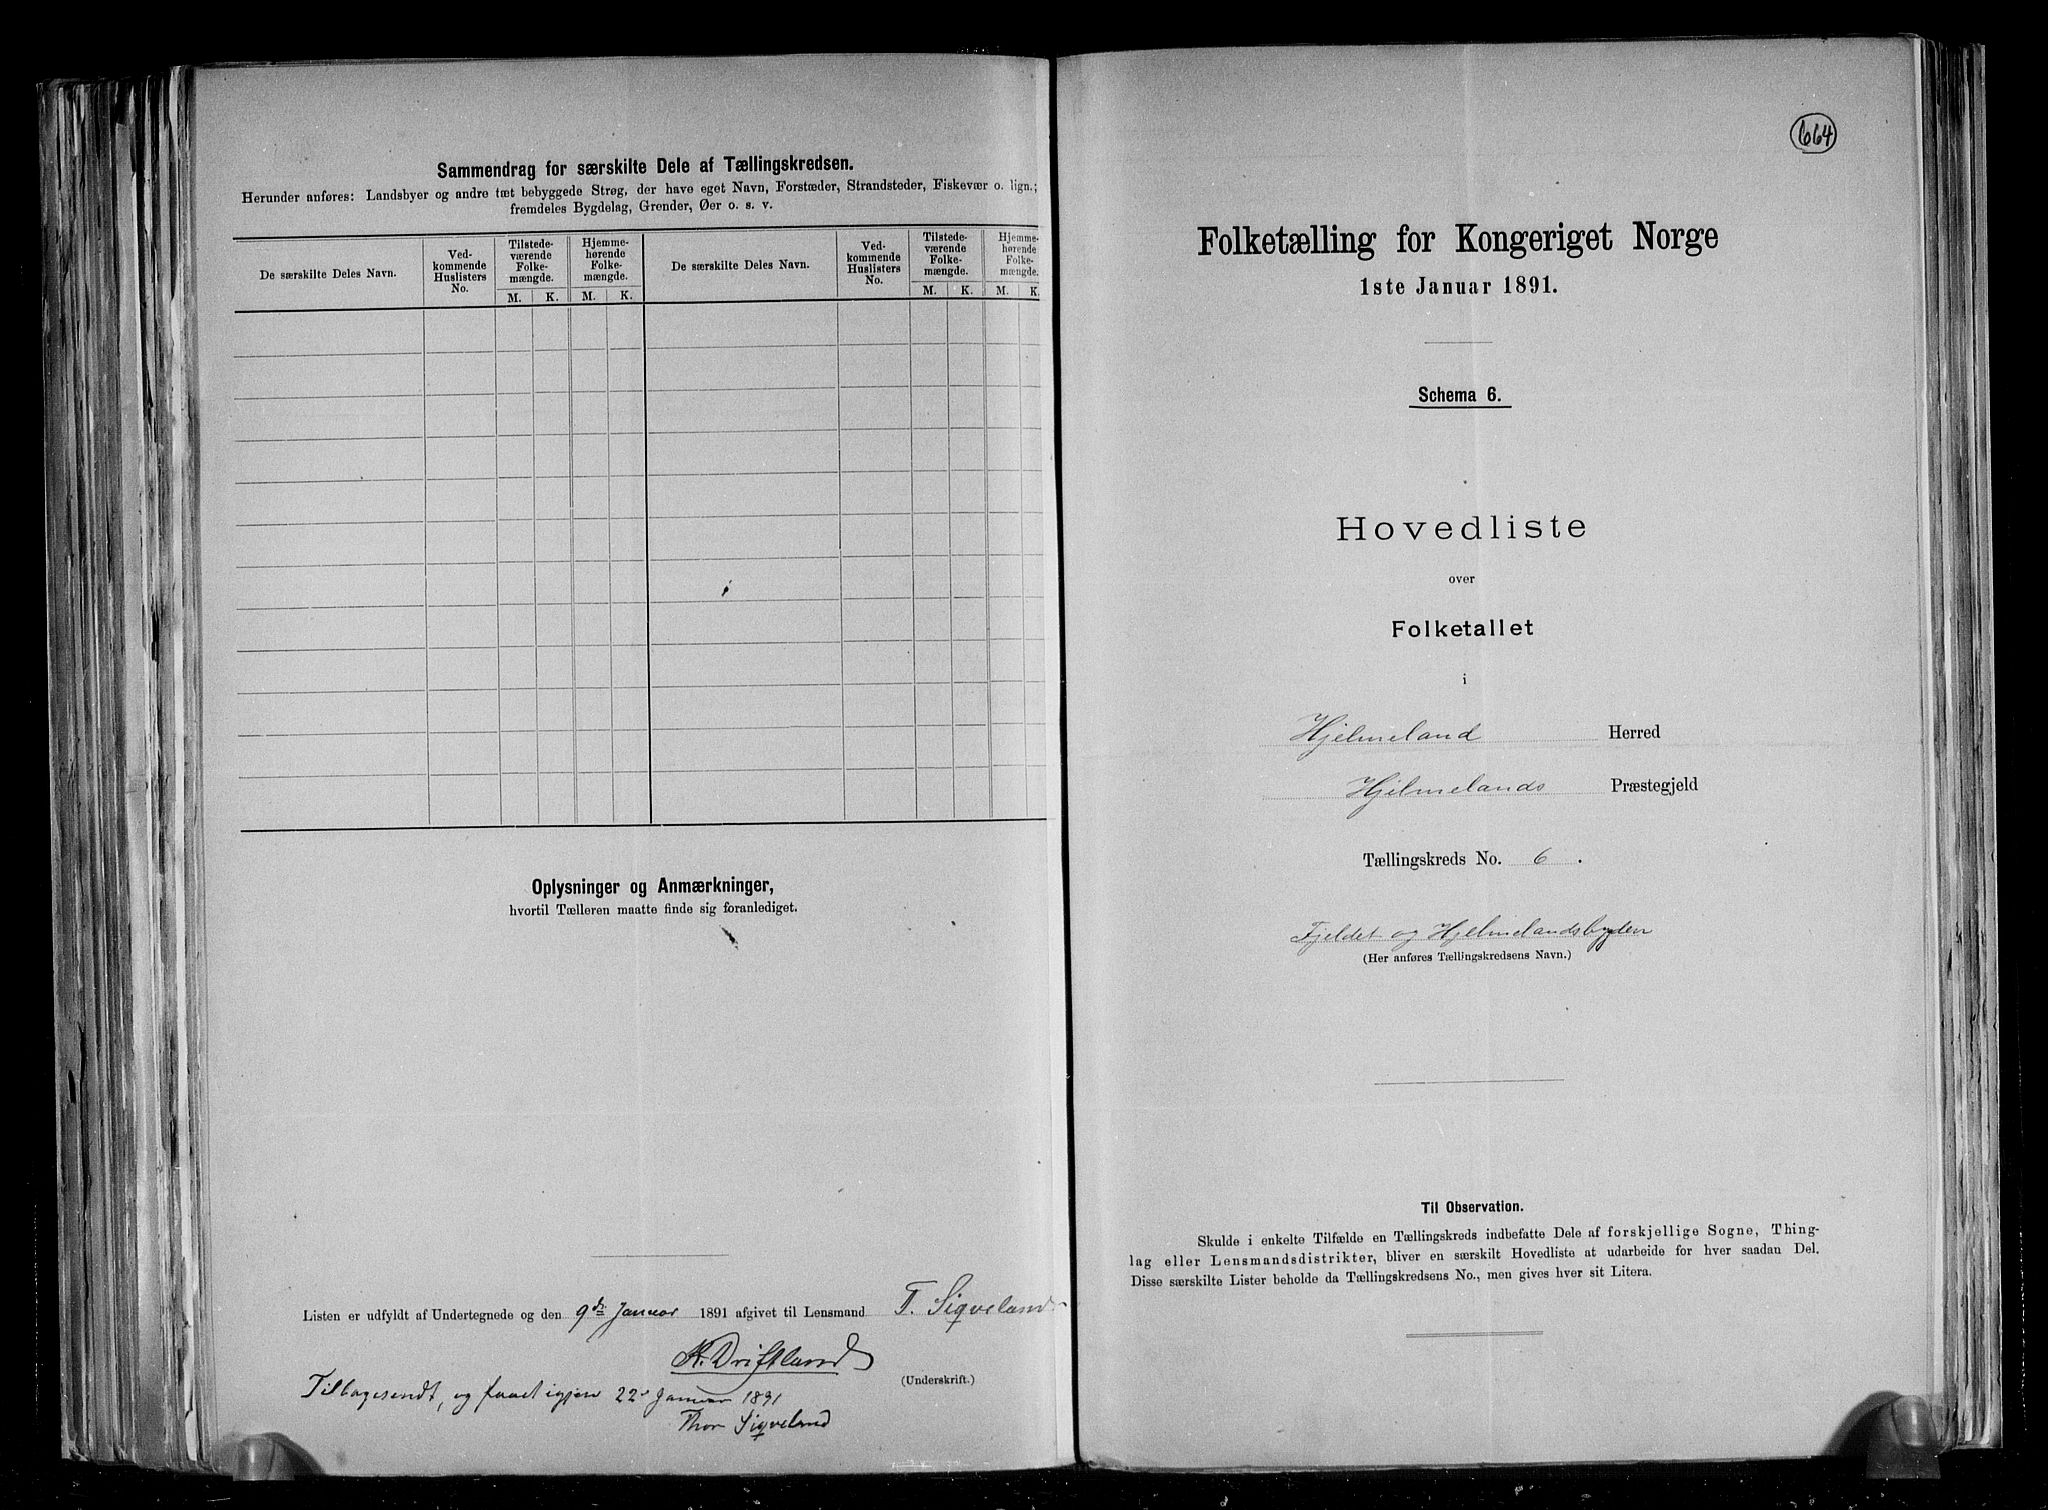 Sammendrag for særskilte Dele af Tællingskredsen.
Herunder anføres: Landsbyer og andre tæt bebyggede Strøg, der have eget Navn, Forstæder, Strandsteder, Fiskevær o. lign.;
fremdeles Bygdelag, Grender, Øer o. s. v.
De særskilte Deles Navn.
Ved-
kommende
Huslisters
No.
Tilstede-
værende
Folke-
mængde.
M. K.
Hjemme-
hørende
Folke-
mængde.
M. K.
De særskilte Deles Navn.
Ved-
kommende
Huslisters
No.
Tilstede-
værende
Folke-
mængde.
M. K.
Hjemme-
hørende
Folke-
mængde.
M. K.
Oplysninger og Anmærkninger,
hvortil Tælleren maatte finde sig foranlediget.
Listen er udfyldt af Undertegnede og den 9de Januar 1891 afgivet til Lensmand T. Siqveland
K. Driftland
(Underskrift.)
Tilbagesendt, og faaet igjen 22 Januar 1891
Thor Siqveland
664
Folketælling for Kongeriget Norge
1ste Januar 1891.
Schema 6.
Hovedliste
over
Folketallet
i
Hjelmeland Herred
Hjelmelands Præstegjeld
Tællingskreds No. 6.
Fjeldet og Hjelmelandsbygden
(Her anføres Tællingskredsens Navn.)
Til Observation.
Skulde i enkelte Tilfælde en Tællingskreds indbefatte Dele af forskjellige Sogne, Thing-
lag eller Lensmandsdistrikter, bliver en særskilt Hovedliste at udarbeide for hver saadan Del.
Disse særskilte Lister beholde da Tællingskredsens No., men gives hver sit Litera.